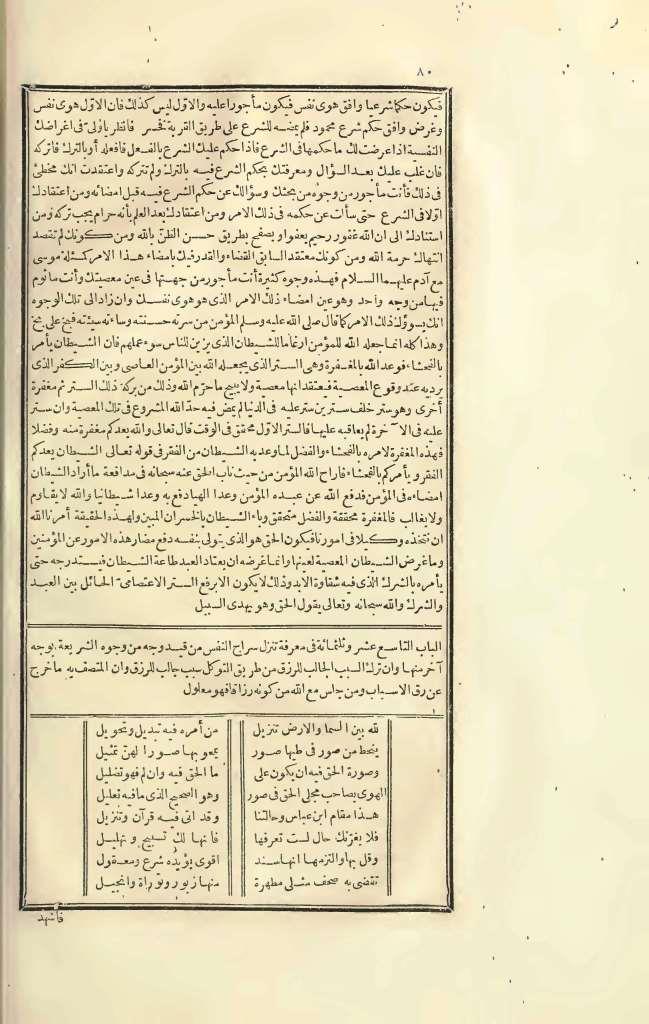 ٨٠
فيكون حكما شرعيا وافق هوى نفس فيكون مأجورا عليه والاول ليس كذلك فان الاول هوى نفس
وغرض وافق حكم شرع محمود فلم يمضه للشرع على طريق القربة فخسر فانظر يا ولىّ فى اغراضك
النفسية اذا عرضت لك ما حكمها فى الشرع فاذا حكم عليك الشرع بالفعل فافعله أو بالترك فاتركه
فان غلب عليك بعد السؤال ومعرفتك بحكم الشرع فيه بالترك ولم تتركه واعتقدت انك مخطئ
فى ذلك فأنت مأجور من وجوه من بحثك وسؤالك عن حكم الشرع فيه قبل امضائه ومن اعتقادك
اوّلا فى الشرع حتى سألت عن حكمه فى ذلك الامر ومن اعتقادك بعد العلم بأنه حرام يجب تركه ومن
استنادك الى ان الله غفور رحيم يعفو ويصفح بطريق حسن الظنّ بالله ومن كونك لم تقصد
انتهاك حرمة الله ومن كونك معتقد السابق القضاء والقدر فيك بامضاء هذا الامر كمسئلة موسى
مع آدم عليهما السلام فهذه وجوه كثيرة أنت مأجور من جهتها فى عين معصيتك وأنت مأثوم
فيها من وجه واحد وهو عين امضاء ذلك الامر الذى هو هوى نفسك وان زاد الى تلك الوجوه
انك يسوؤك ذلك الامر كما قال صلى الله عليه وسلم المؤمن من سرته حسنته وساءته سيئته فبخ على بخ
وهذا كله انما جعله الله للمؤمن ارغاما للشيطان الذى يزين للناس سوء عملهم فان الشيطان يأمر
بالفحشاء فوعد الله بالمغفرة وهى الستر الذى يجعله الله بين المؤمن العاصى وبين الكفر الذى
يرديه عند وقوع المعصية فيعتقد انها معصية ولا يبيح ما حرّم الله وذلك من بركة ذلك الستر ثم مغفرة
أخرى وهو ستر خلف ستر بن ستر عليه فى الدنيا لم يمض فيه حدّ الله المشروع فى تلك المعصية وان ستر
عليه فى الآخرة لم يعاقبه عليها فالستر الاول محقق فى الوقت قال تعالى والله يعدكم مغفرة منه وفضلا
فهذه المغفرة لامره بالفحشاء والفضل لما وعد به الشيطان من الفقر فى قوله تعالى الشيطان يعدكم
الفقر ويأمركم بالفحشاء فاراح الله المؤمن من حيث ناب الحق عنه سبحانه فى مدافعة ما أراد الشيطان
امضاءه فى المؤمن فدفع الله عن عبده المؤمن وعدا الهيا دفع به وعدا شيطانيا والله لا يقاوم
ولا يغالب فالمغفرة محققة والفضل متحقق وباء الشيطان بالخسران المبين ولهذه الحقيقة أمرنا الله
ان نتخذه وكيلا فى امورنا فيكون الحق هو الذى يتولى بنفسه دفع مضار هذه الامور عن المؤمنين
وما غرض الشيطان المعصية لعينها وانما غرضه ان يعتاد العبد طاعة الشيطان فيستدرجه حتى
يأمره بالشرك الذى فيه شقاوة الابد وذلك لا يكون الا برفع الستر الاعتصامىّ الحائل بين العبد
والشرك والله سبحانه وتعالى يقول الحق وهو يهدى السبيل
الباب التاسع عشر وثلثمائة فى معرفة تنزل سراح النفس من قيد وجه من وجوه الشريعة بوجه
آخر منها وان ترك السبب الجالب للرزق من طريق التوكل سبب جالب للرزق وان المتصف به ما خرج
عن رق الاسباب ومن جلس مع الله من كونه رزاقا فهو معلول
لله بين السما والارض تنزيل من أمره فيه تبديل وتحويل
ينحط من صور فى طيها صور يمحو بها صورا لهنّ تمثيل
وصورة الحق فيه ان يكون على ما الحق فيه وان لم فهو تضليل
الهوى بصاحب مجلى الحق فى صور وهو الصحيح الذى ما فيه تعليل
هذا مقام ابن عباس وحالتنا وقد اتى فيه قرآن وتنزيل
فلا يغرّنك حال لست تعرفها فانها لك تسبيح وتهليل
وقل بها والتزمها انها سند اقوى يؤيده شرع ومعقول
تقضى به صحف مثلى مطهرة منها زبور وتوراة وانجيل
فاشهد